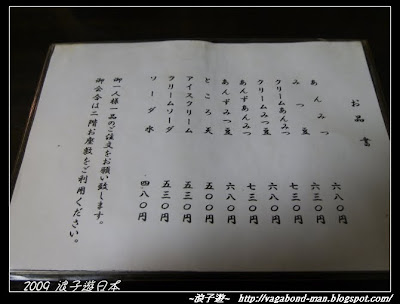 お品書
あんみつ 六八〇円
みつ豆 六三〇円
クリームあんみつ 七三〇円
クリームみつ豆 六八〇円
あんずあんみつ 七三〇円
あんずみつ豆 六八〇円
ところ天 五〇〇円
アイスクリーム 五三〇円
クリームソーダ 五三〇円
ソーダ水 四八〇円
御一人様一品のご注文をお願い致します。
御会合は二階お座敷をご利用ください。
2009 浪子遊日本
~浪子遊~ http://vagabond-man.blogspot.com/